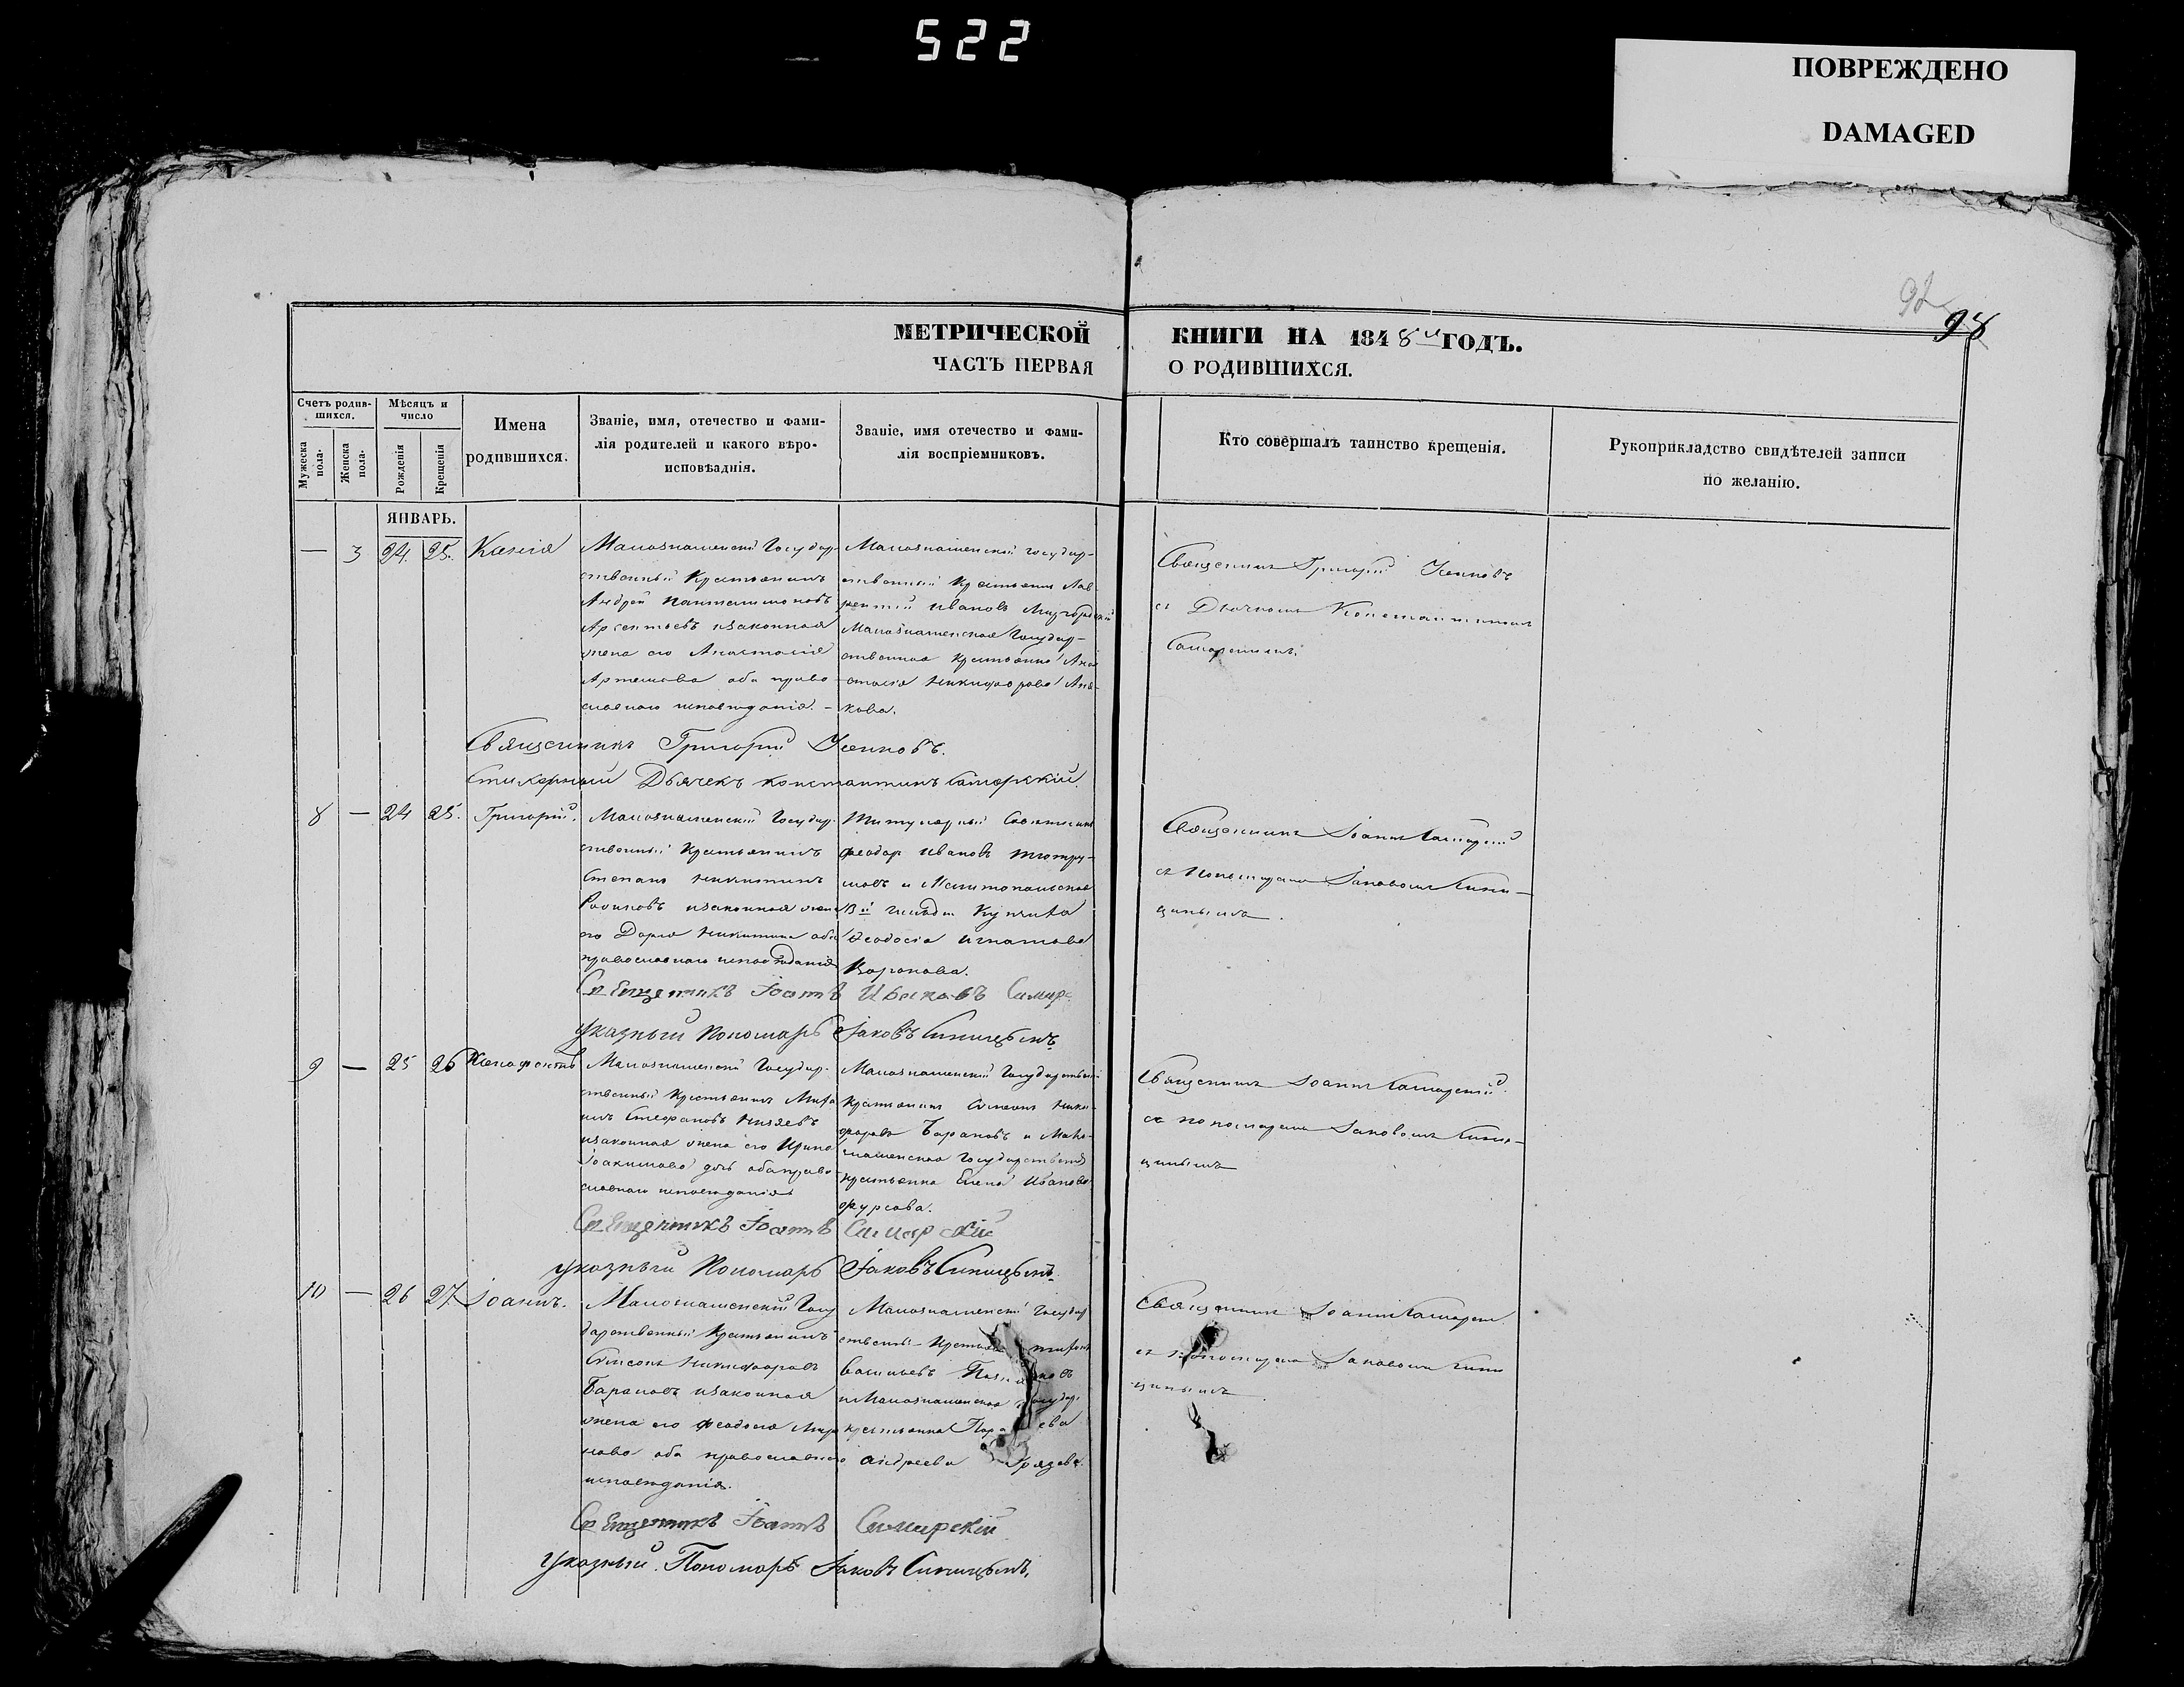 522
ПОВРЕЖДЕНО
DAMAGED
98
МЕТРИЧЕСКОЙ КНИГИ НА 1848й ГОДЪ.
ЧАСТЬ ПЕРВАЯ О РОДИВШИХСЯ.
Счетъ родив-
шихся.
Мужеска
пола.
Женска
пола.
Мѣсяцъ и
число
Рожденія
Крещенія
Имена
родившихся.
Званіе, имя, отечество и фами-
лія родителей и какого вѣро-
исповѣаднія.
Званіе, имя отечество и фами-
лія воспріемниковъ.
Кто совершалъ таинство крещенія.
Рукоприкладство свидѣтелей записи
по желанію.
ЯНВАРЬ.
— 3 24. 25. Ксенія
Малознаменскій Государ-
ственный Крестьянинъ
Андрей Пантелимоновъ
Арсентьевъ изаконная
жена его Анастасія
Артемова оба право-
славнаго исповѣданія. –
Малознаменскій государ-
ственный Крестьянин Лав-
рентій Ивановъ
Малознаменская Государ-
ственная крестьянка Ана-
стасія Никифорова
кова.
Священникъ Григорій
съ Дьячкомъ Константиномъ
Самарскимъ.
Священникъ Григорій
Стихарный Дьячекъ Константинъ Самарскій.
8 — 24 25. Григорій.
Малознаменскій Государ-
ственный Крестьянинъ
Степанъ Никитинъ
изаконная жена
его Дарья Никитина оба
православнаго исповѣданія
Титулярный Совѣтникъ
Феодор Ивановъ
и Мелитопольская
гильдіи Купчиха
Феодосія Игнатова
Воронова.
Священникъ Іоаннъ Самарскій
съ Пономаремъ Іаковомъ Сини-
цинымъ.
Священникъ Іоаннъ
указный Пономарь Іаковъ Синицынъ
9 — 25 26 Ксенофонтъ
Малознаменскій Государ-
ственный Крестьянинъ
Стефановъ Князевъ
изаконная жена его Ирина
Іоакимова оба право-
славнаго исповѣданія
Малознаменскій Государственный
крестьянинъ Симеонъ Ники-
форовъ Барановъ и Мало-
знаменская Государственная
крестьянка Елена Иванова
Фурсова.
Священникъ Іоаннъ Самарскій
съ пономаремъ Іаковомъ Сини-
цинымъ
Священникъ Іоаннъ Самарскій
указный Пономарь Іаковъ Синицынъ.
10 — 26 27 Іоаннъ.
Малознаменскій Госу
дарственный Крестьянинъ
Симеонъ Никифоровъ
Барановъ изаконная
жена его Феодосія
нова оба православнаго
исповѣданія.
Малознаменскій Государ
ственный
Васильевъ
и Малознаменская Государ.
крестьянка
Андреева
Священникъ Іоаннъ Самарск.
съ пономаремъ Іаковомъ Сини
цинымъ
Священникъ Іоаннъ Самарскій
указный. Пономарь Іаковъ Синицынъ.